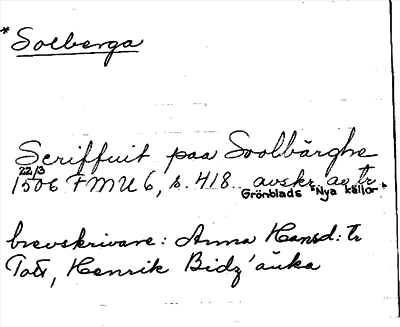 * Solberga
Scriffuit paa Soolbärghe
22/3
1506 FMU 6, s. 418. avskr. av tr.
Grönblads "Nya källor"
brevskrivare: Anna Hansd:tr
Tott, Henrik Bidz' änka